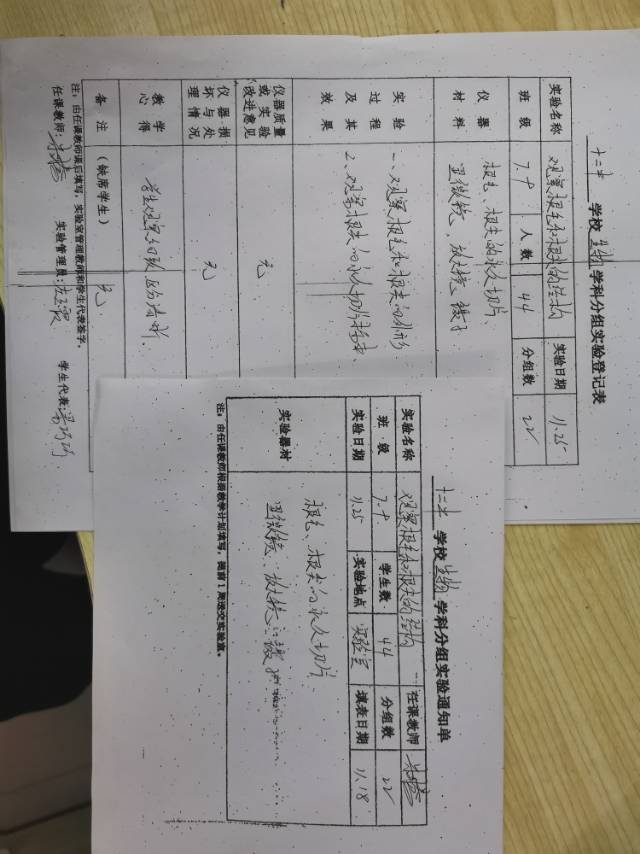 十二中 学校 生物 学科分组实验登记表
实验名称 观察根毛和根尖的结构 实验日期 11.25
班级 7.9 人数 44 分组数 22
仪器材料 根毛、根尖的永久切片、
显微镜、放大镜、镊子
实验过程及其效果 一、观察根毛和根尖的外形
2、观察根尖的永久切片
仪器质量或实验改进意见 无
仪器损坏与处理情况 无
教学心得
备注(缺席学生) 无
注:由任课教师课后填写,实验室管理教师和学生代表签字。
任课教师: 实验管理员: 学生代表:
十二中 学校 生物 学科分组实验通知单
实验名称 观察根毛和根尖的结构 任课教师
班级 7.9 学生数 44 分组数 22
实验日期 11.25 实验地点 实验室 填表日期 11.18
实验器材 根毛、根尖的永久切片、
显微镜、放大镜、镊子
注:由任课教师根据教学计划填写,提前1周送交实验室。